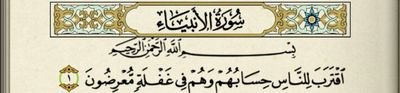 سُورَةُ الأَنبِيَاءِ
بِسْمِ اللَّهِ الرَّحْمَٰنِ الرَّحِيمِ
ٱقْتَرَبَ لِلنَّاسِ حِسَابُهُمْ وَهُمْ فِى غَفْلَةٍ مُّعْرِضُونَ ١